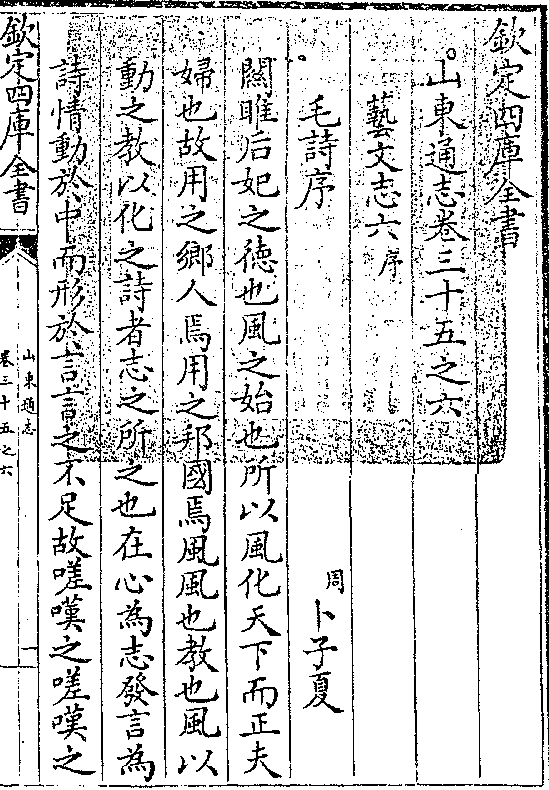 欽定四庫全書
山東通志卷三十五之六
藝文志六序
毛詩序
周卜子夏
關雎后妃之徳也風之始也所以風化天下而正夫
婦也故用之鄉人焉用之邦國焉風風也教也風以
動之教以化之詩者志之所之也在心為志發言為
詩情動於中而形於言言之不足故嗟嘆之嗟嘆之
欽定四庫全書
山東通志
卷三十五之六
一